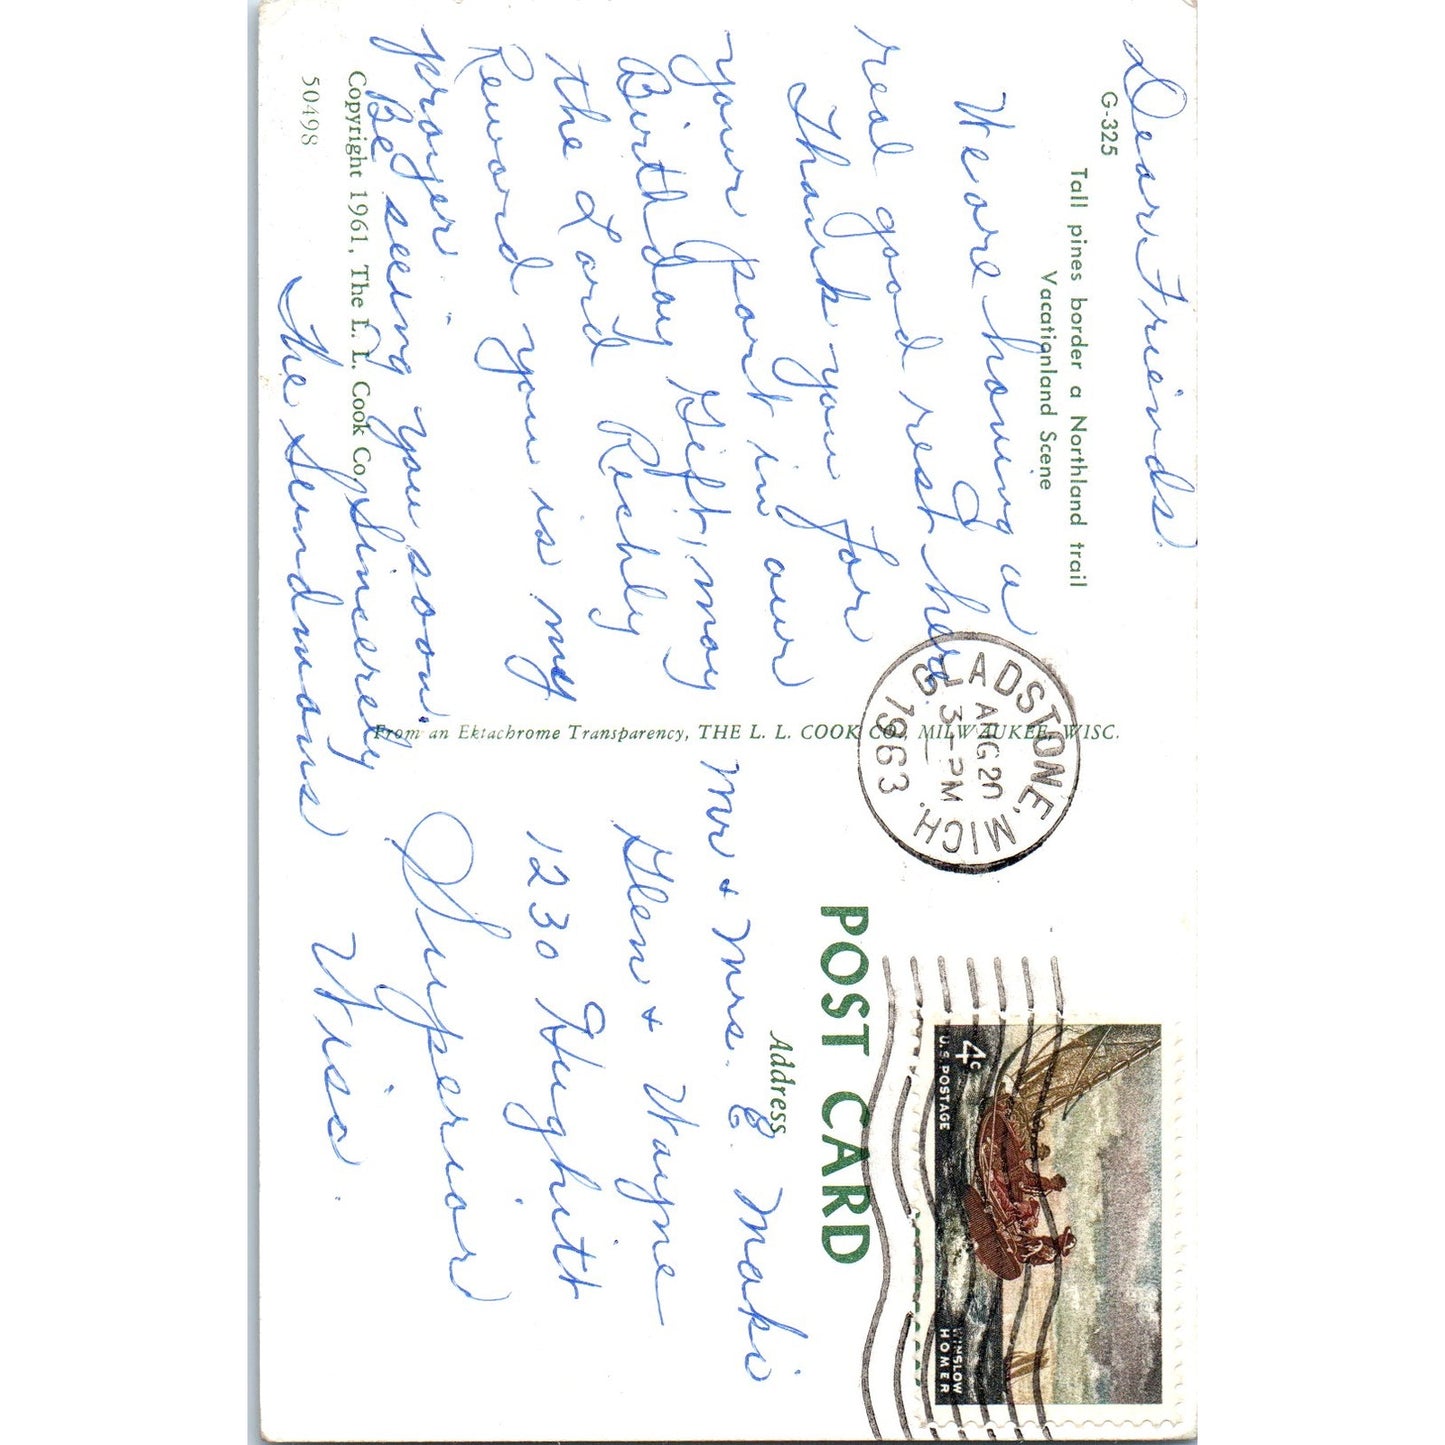 Dear Friends.
G-325
Tall pines border a Northland trail
Vacationland Scene
We are having a
real good rest here
Thank you for
your part in our
Birthday Gift, may
the Lord Richly
Reword you is my
prayer.
Be seeing you soon.
Sincerely
The Sundmans
Copyright 1961, The L. L. Cook Co.
50498
From an Ektachrome Transparency, THE L. L. COOK CO., MILWAUKEE, WISC.
GLADSTONE, MICH.
AUG 20
3 - PM
1963
POST CARD
Address
4c
U.S. POSTAGE
WINSLOW
HOMER
Mr + Mrs. E. Maki
Glen + Wayne
1230 Hughitt
Superior
Wisc.